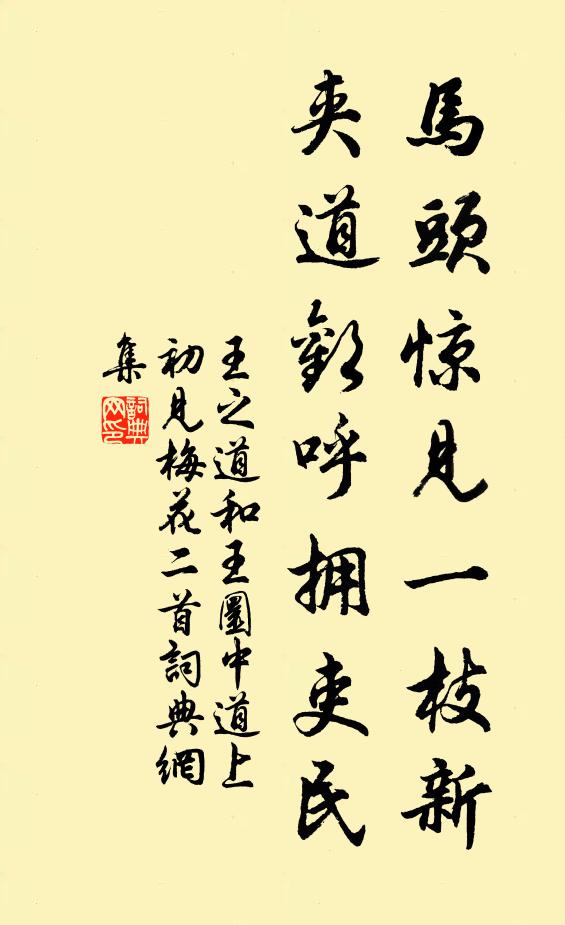 馬頭惊見一枝新
夾道歡呼拥吏民
王之道和王圖中道上
初見梅花二首詞典網
集
詞典
网印